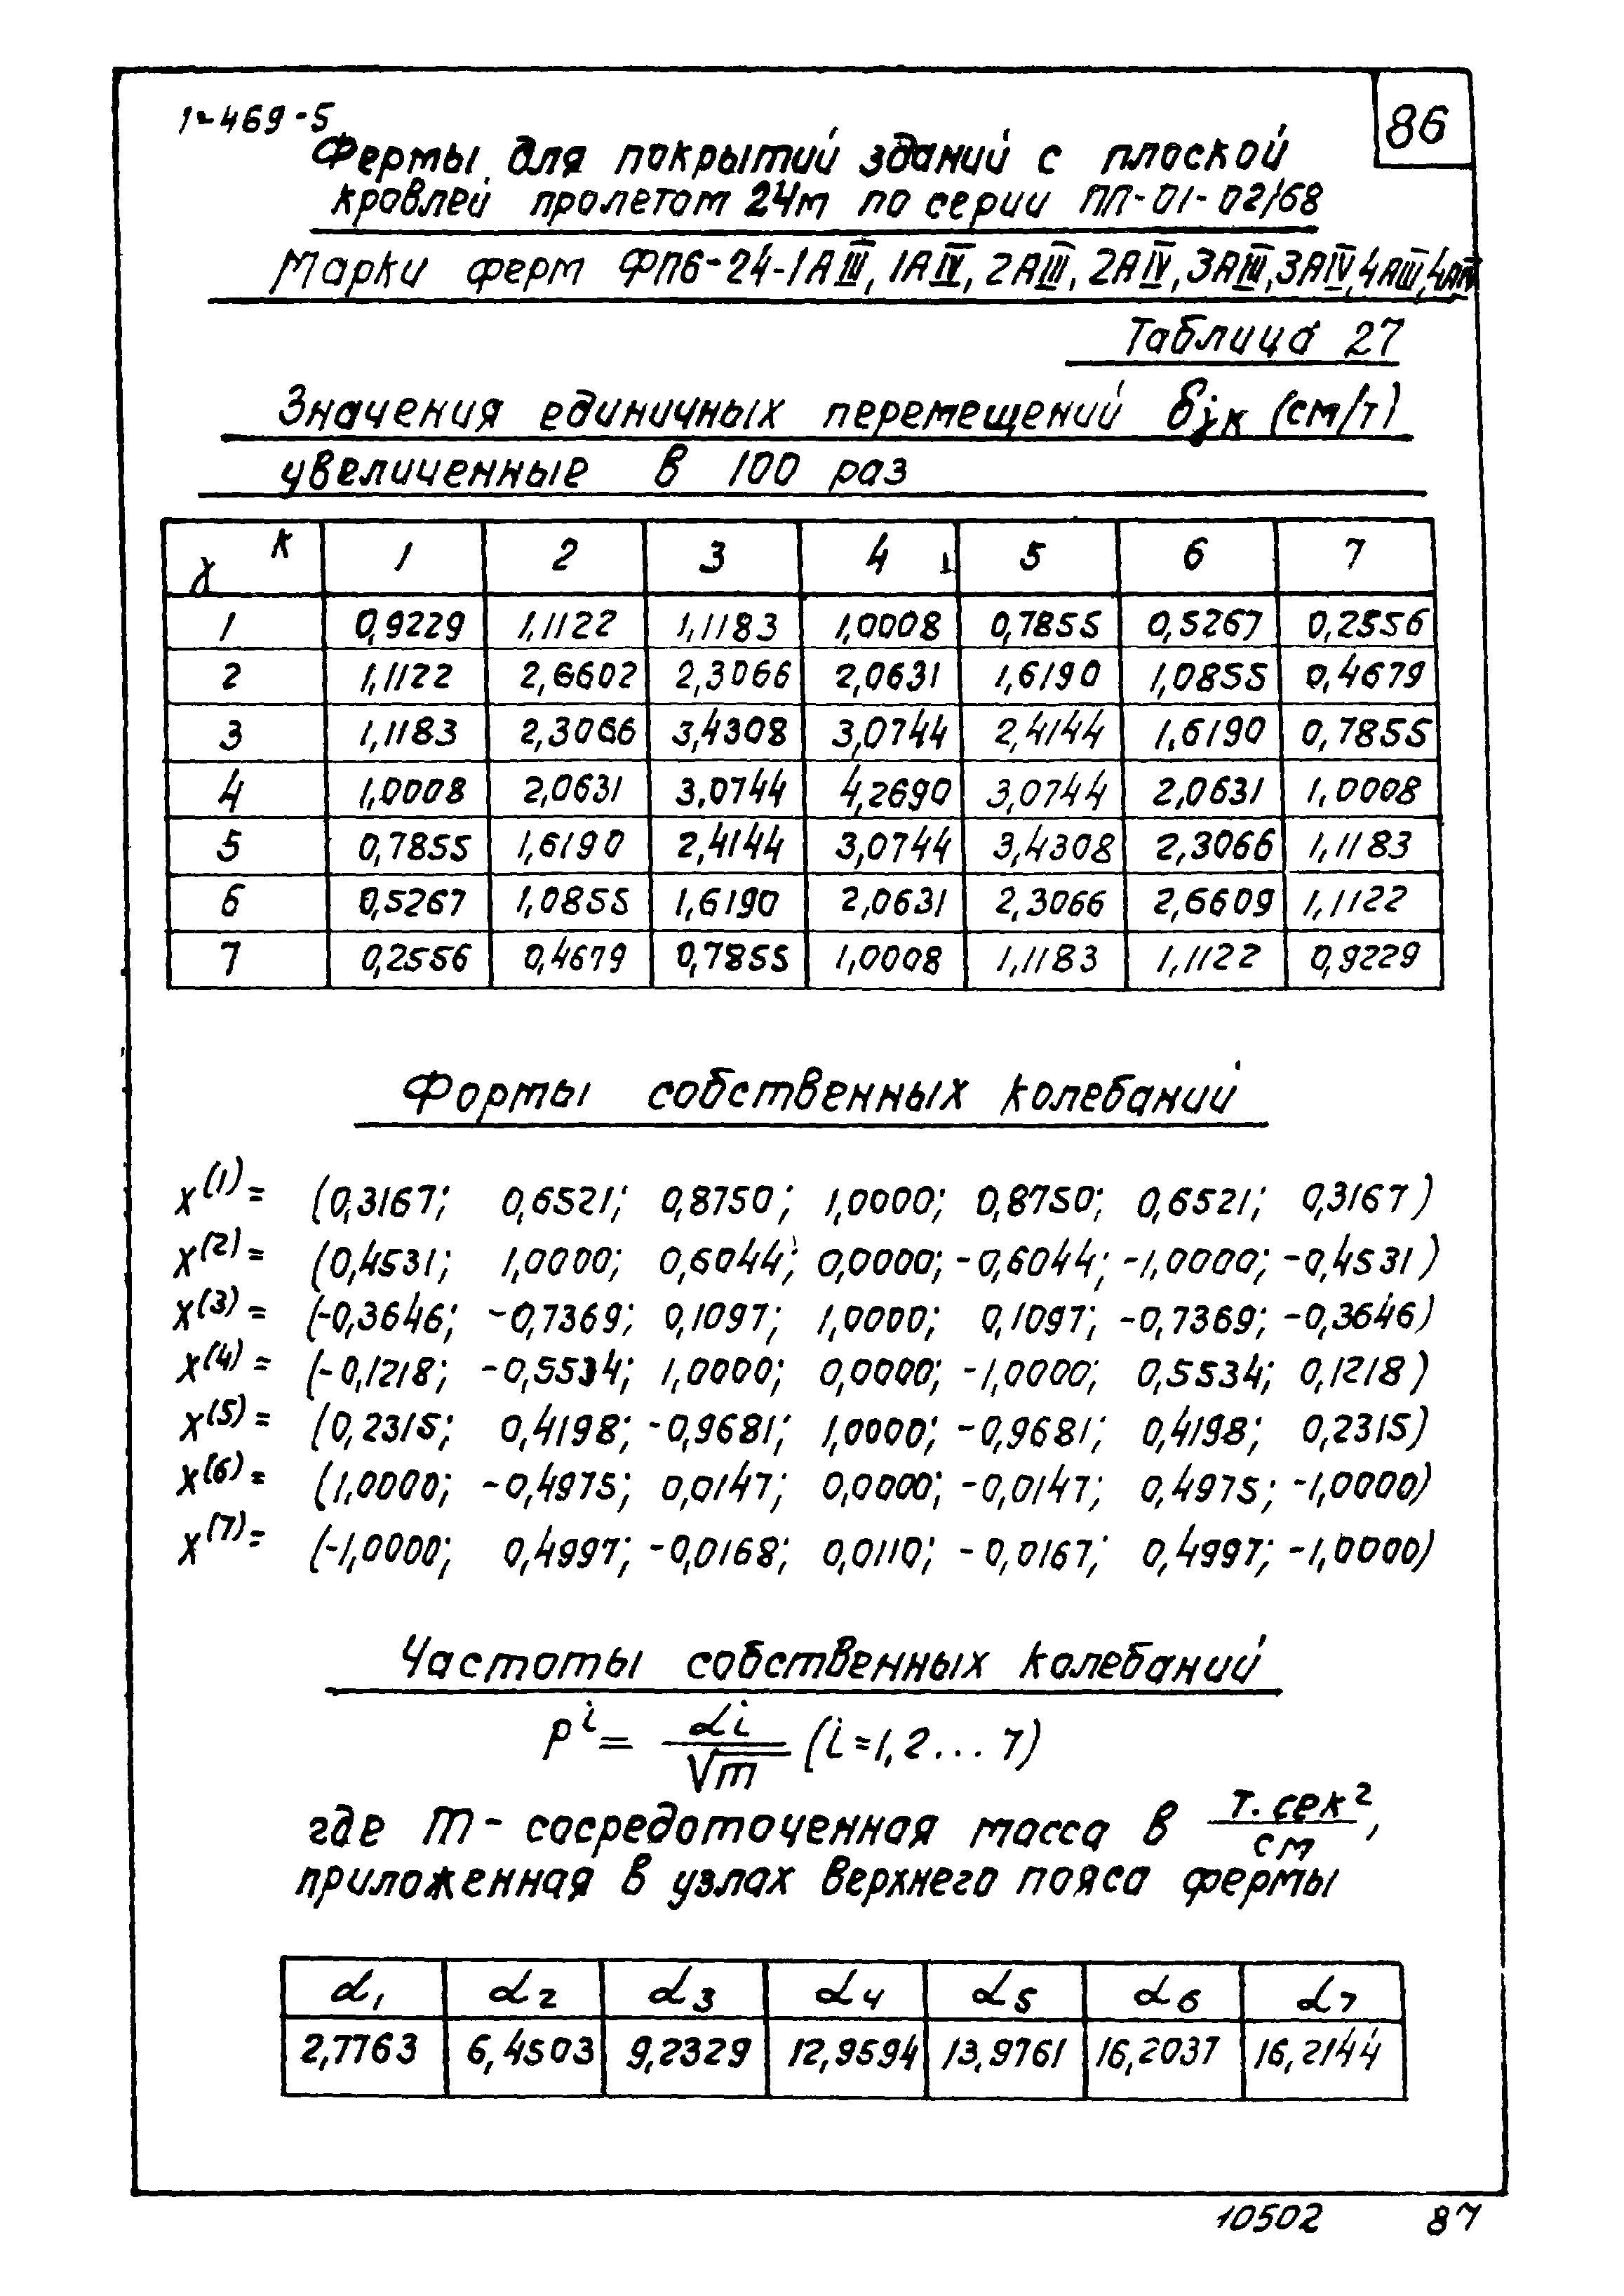 1-469-5
86
Фермы для покрытий зданий с плоской
кровлей пролетом 24м по серии ПП-01-02/68
Марки ферм ФП6-24-1АIII, 1АIV, 2АIII, 2АIV, 3АIII, 3АIV, 4АIII, 4АIV
Таблица 27
Значения единичных перемещений δjк (см/т)
увеличенные в 100 раз
j к 1 2 3 4 5 6 7
1 0,9229 1,1122 1,1183 1,0008 0,7855 0,5267 0,2556
2 1,1122 2,6602 2,3066 2,0631 1,6190 1,0855 0,4679
3 1,1183 2,3066 3,4308 3,0744 2,4144 1,6190 0,7855
4 1,0008 2,0631 3,0744 4,2690 3,0744 2,0631 1,0008
5 0,7855 1,6190 2,4144 3,0744 3,4308 2,3066 1,1183
6 0,5267 1,0855 1,6190 2,0631 2,3066 2,6609 1,1122
7 0,2556 0,4679 0,7855 1,0008 1,1183 1,1122 0,9229
Формы собственных колебаний
x(1)= (0,3167; 0,6521; 0,8750; 1,0000; 0,8750; 0,6521; 0,3167)
x(2)= (0,4531; 1,0000; 0,6044; 0,0000; -0,6044; -1,0000; -0,4531)
x(3)= (-0,3646; -0,7369; 0,1097; 1,0000; 0,1097; -0,7369; -0,3646)
x(4)= (-0,1218; -0,5534; 1,0000; 0,0000; -1,0000; 0,5534; 0,1218)
x(5)= (0,2315; 0,4198; -0,9681; 1,0000; -0,9681; 0,4198; 0,2315)
x(6)= (1,0000; -0,4975; 0,0147; 0,0000; -0,0147; 0,4975; -1,0000)
x(7)= (-1,0000; 0,4997; -0,0168; 0,0110; -0,0167; 0,4997; -1,0000)
Частоты собственных колебаний
P^i = αi/√m (i=1,2...7)
где m - сосредоточенная масса в т.сек²/см,
приложенная в узлах верхнего пояса фермы
α1 α2 α3 α4 α5 α6 α7
2,7763 6,4503 9,2329 12,9594 13,9761 16,2037 16,2144
10502 87